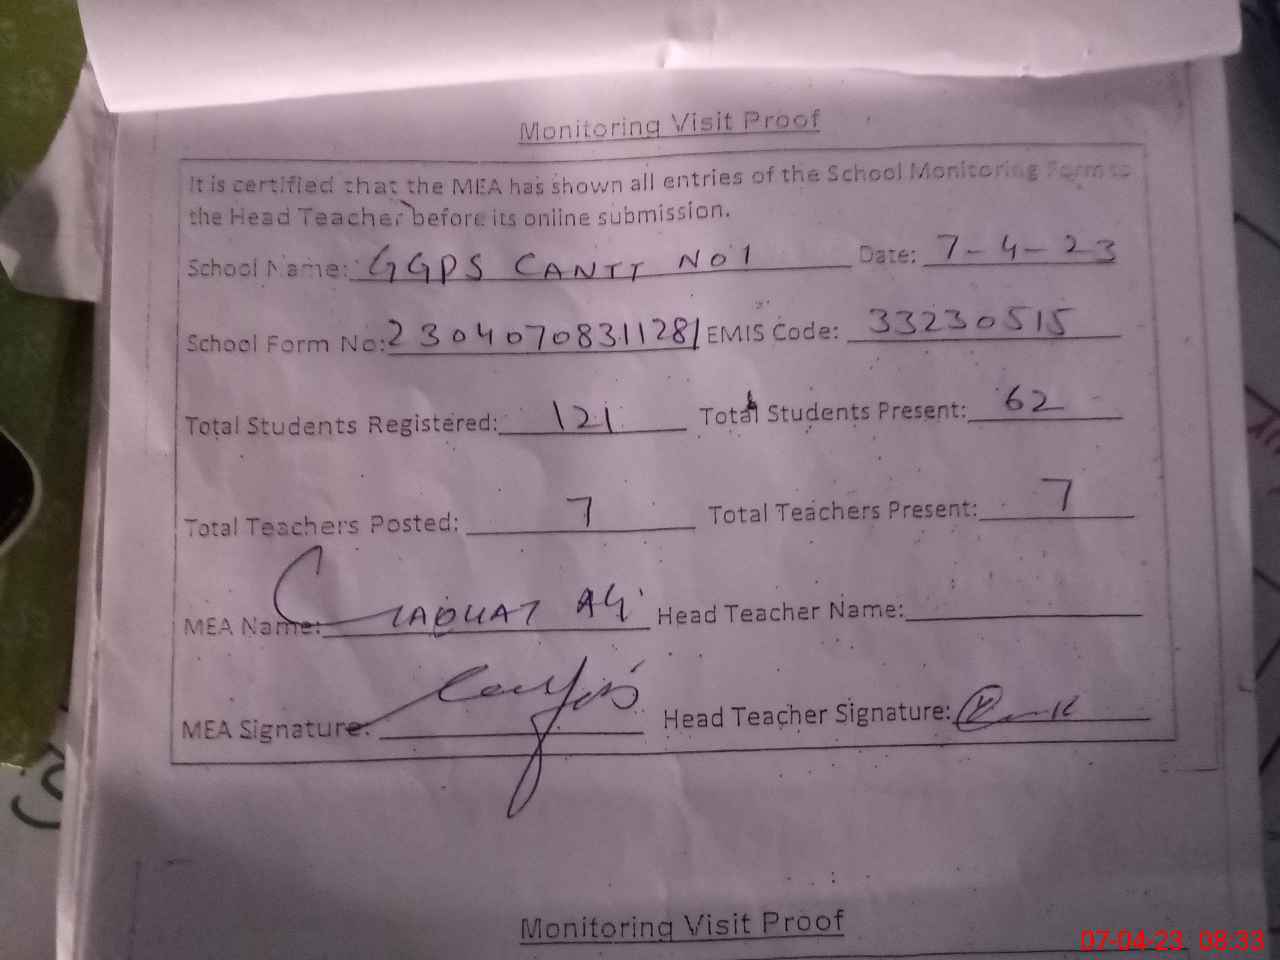 Monitoring Visit Proof
It is certified that the MEA has shown all entries of the School Monitoring Form to
the Head Teacher before its online submission.
School Name: GGPS CANTT NO 1 Date: 7-4-23
School Form No: 23040708311281 EMIS Code: 33230515
Total Students Registered: 121 Total Students Present: 62
Total Teachers Posted: 7 Total Teachers Present: 7
MEA Name: Head Teacher Name:
MEA Signature: Head Teacher Signature:
Monitoring Visit Proof
07-04-23 08:33